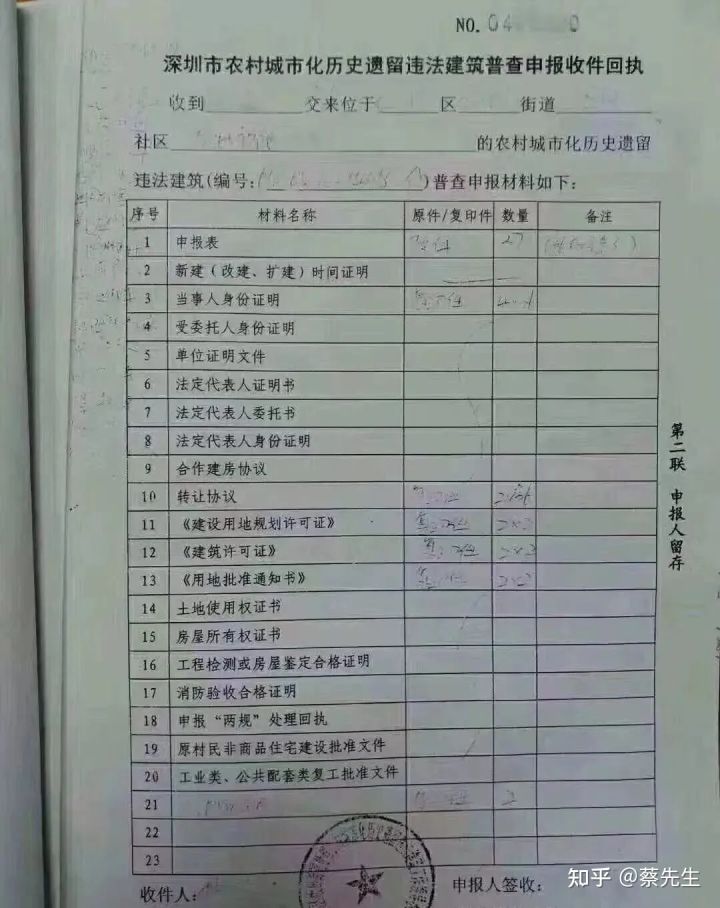 NO.04
深圳市农村城市化历史遗留违法建筑普查申报收件回执
收到 交来位于 区 街道
社区 的农村城市化历史遗留
违法建筑(编号: )普查申报材料如下:
序号 材料名称 原件/复印件 数量 备注
1 申报表 27
2 新建(改建、扩建)时间证明
3 当事人身份证明
4 受委托人身份证明
5 单位证明文件
6 法定代表人证明书
7 法定代表人委托书
8 法定代表人身份证明
9 合作建房协议
10 转让协议
11 《建设用地规划许可证》 2×2
12 《建筑许可证》 2×2
13 《用地批准通知书》 2×2
14 土地使用权证书
15 房屋所有权证书
16 工程检测或房屋鉴定合格证明
17 消防验收合格证明
18 申报“两规”处理回执
19 原村民非商品住宅建设批准文件
20 工业类、公共配套类复工批准文件
21 2
22
23
收件人: 申报人签收:
第二联 申报人留存
知乎 @蔡先生